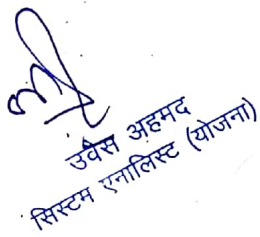 उवैस अहमद
सिस्टम एनालिस्ट (योजना)